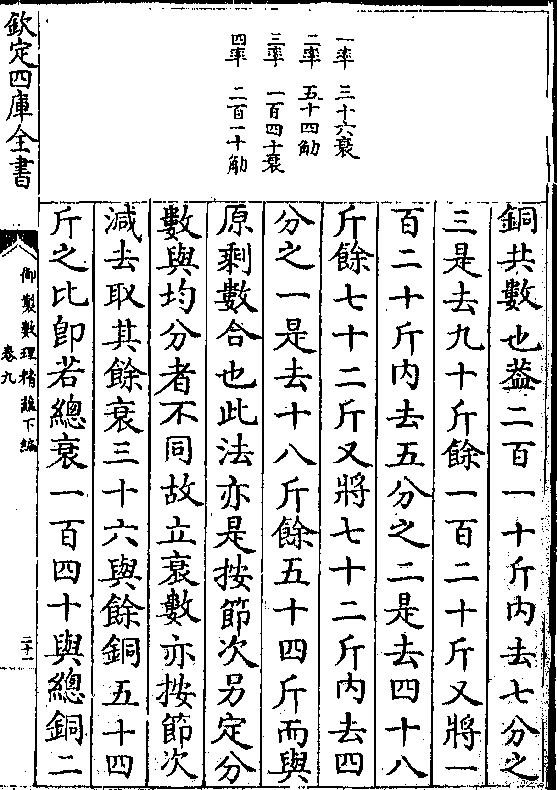 一率　三十六衰
二率　五十四觔
三率　一百四十衰
四率　二百一十觔
銅共數也葢二百一十斤内去七分之
三是去九十斤餘一百二十斤又將一
百二十斤内去五分之二是去四十八
斤餘七十二斤又將七十二斤内去四
分之一是去十八斤餘五十四斤而與
原剩數合也此法亦是按節次另定分
數與均分者不同故立衰數亦按節次
減去取其餘衰三十六與餘銅五十四
斤之比卽若總衰一百四十與總銅二
欽定四庫全書
御製數理精蘊下編
卷九
二十一